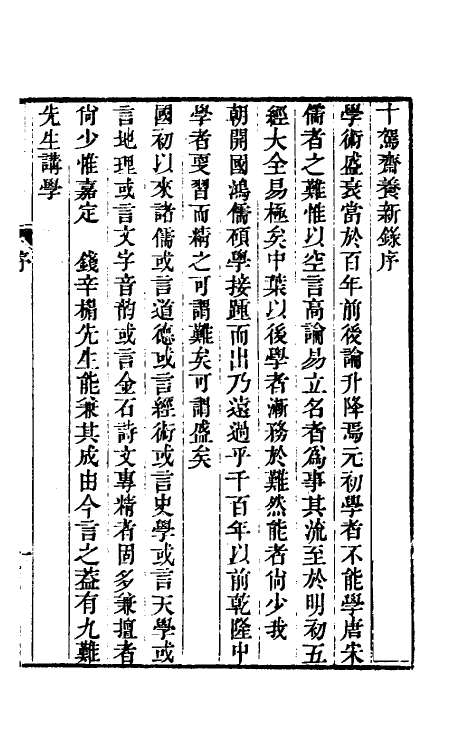 十駕齋養新錄序
學術盛衰當於百年前後論升降焉元初學者不能學唐宋
儒者之難惟以空言高論易立名者爲事其流至於明初五
經大全易極矣中葉以後學者漸務於難然能者尙少我
朝開國鴻儒碩學接踵而出乃遠過乎千百年以前乾隆中
學者更習而精之可謂難矣可謂盛矣
國初以來諸儒或言道德或言經術或言史學或言天學或
言地理或言文字音韵或言金石詩文專精者固多兼擅者
尙少惟嘉定 錢辛楣先生能兼其成由今言之葢有九難
先生講學
序
一